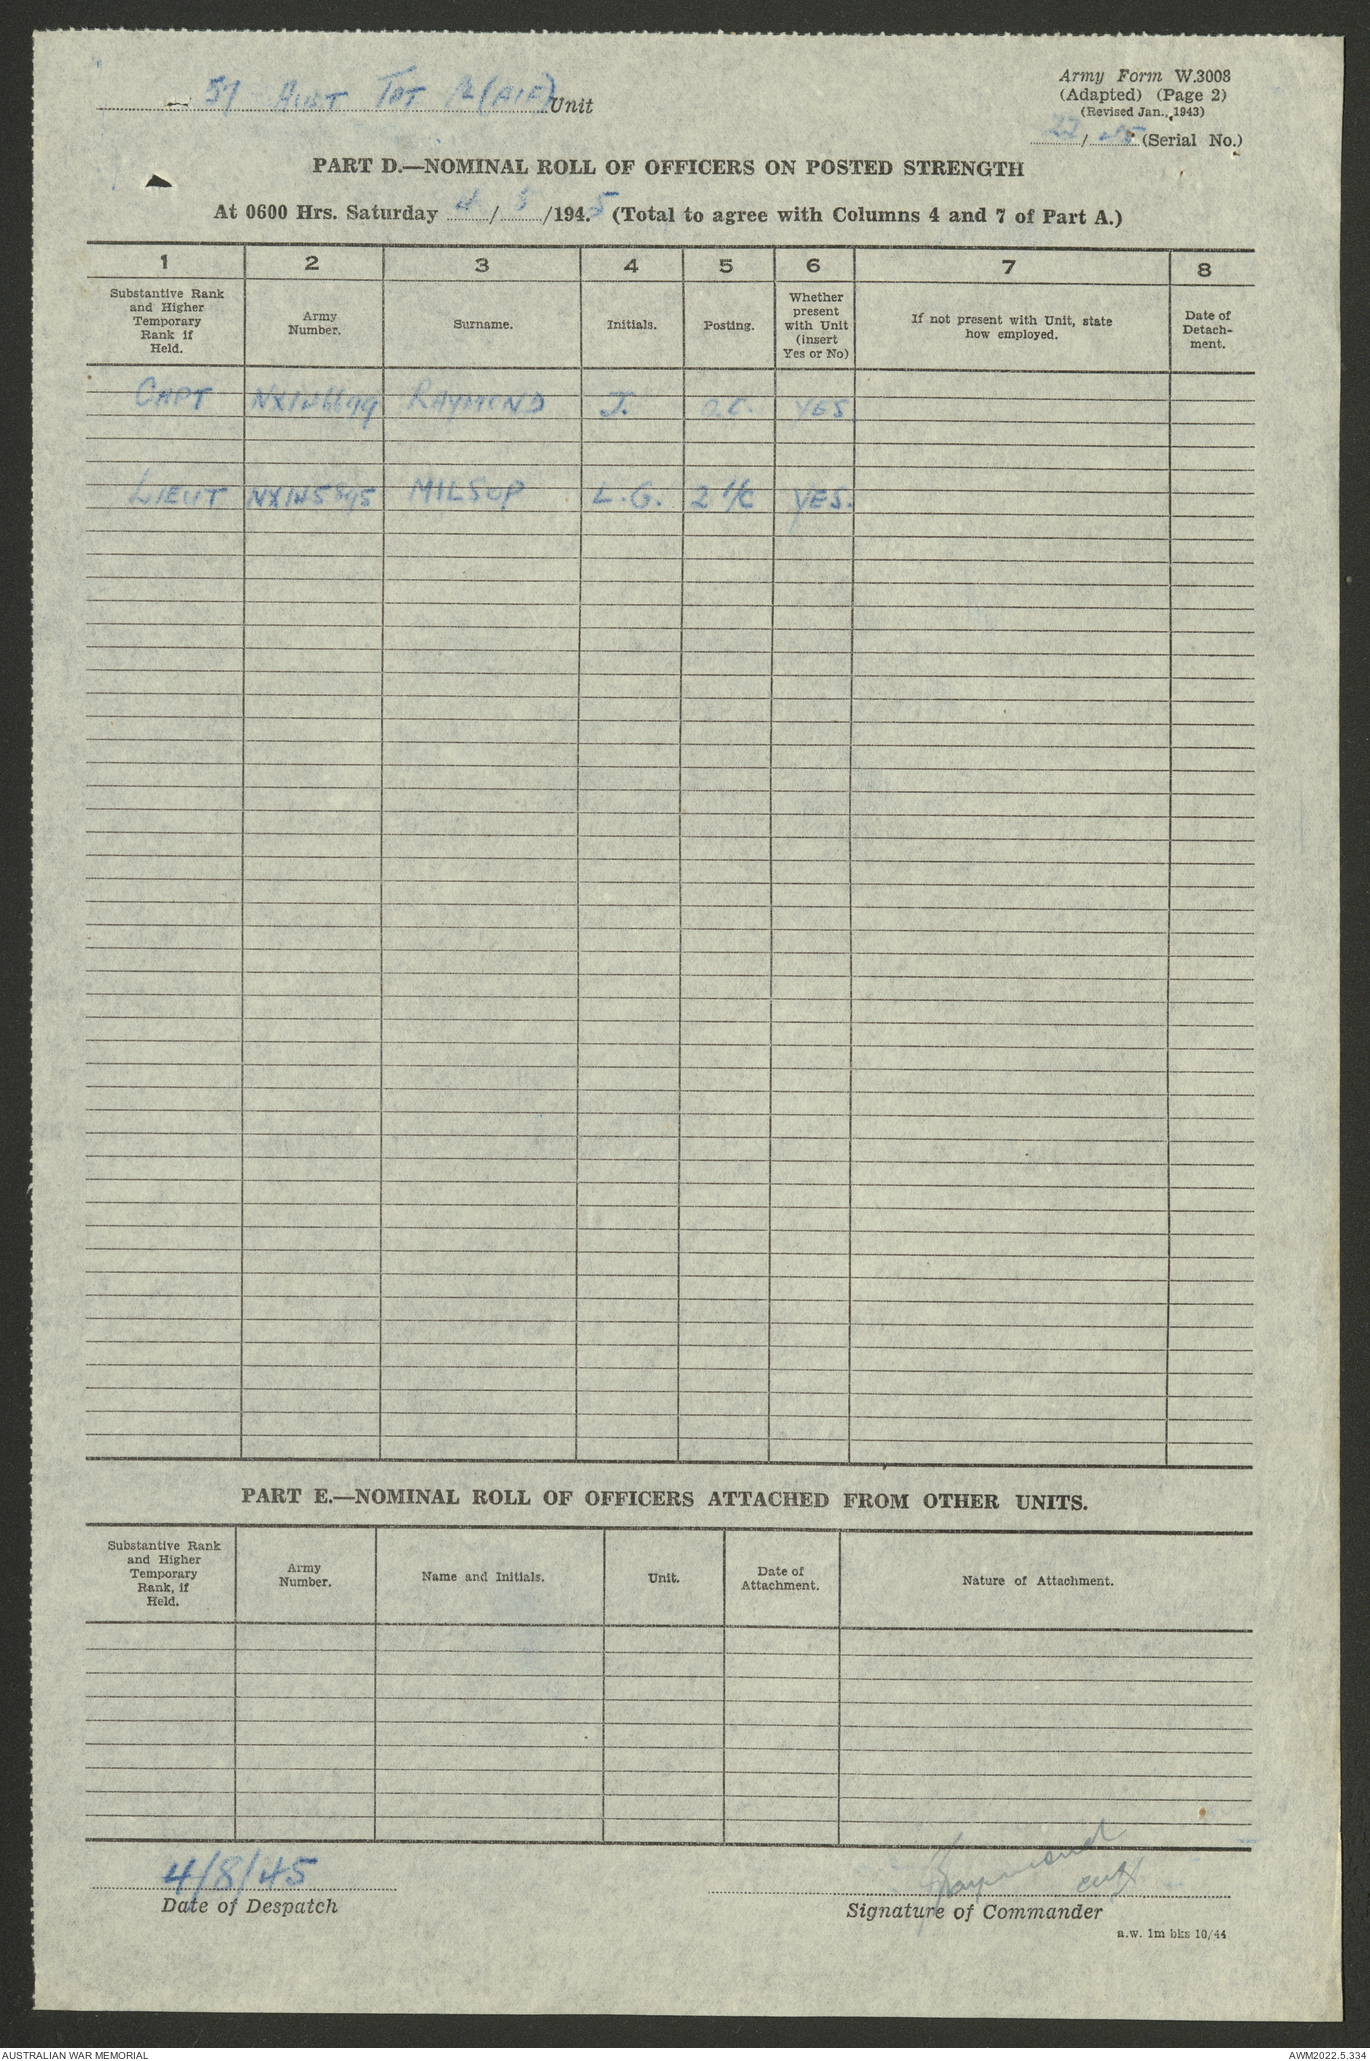 57 Aust Tpt Pl (AIF) Unit
Army Form W.3008
(Adapted) (Page 2)
(Revised Jan., 1943)
22/45 (Serial No.)
PART D.—NOMINAL ROLL OF OFFICERS ON POSTED STRENGTH
At 0600 Hrs. Saturday 4/8/1945 (Total to agree with Columns 4 and 7 of Part A.)
1 2 3 4 5 6 7 8
Substantive Rank and Higher Temporary Rank if Held. Army Number. Surname. Initials. Posting. Whether present with Unit (insert Yes or No) If not present with Unit, state how employed. Date of Detach-ment.
CAPT RAYMOND J. O.C. YES
LIEUT MILSOP L.G. 2 I/C YES.
PART E.—NOMINAL ROLL OF OFFICERS ATTACHED FROM OTHER UNITS.
Substantive Rank and Higher Temporary Rank, if Held. Army Number. Name and Initials. Unit. Date of Attachment. Nature of Attachment.
4/8/45
Date of Despatch
Raymond Capt
Signature of Commander
a.w. 1m bks 10/44
AUSTRALIAN WAR MEMORIAL
AWM2022.5.334